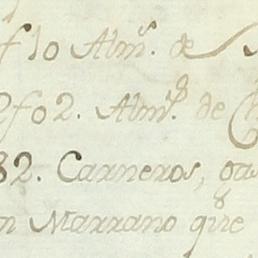 f10 Alm.s de
2f02. Alm.s de
82. Carneros,
n Marrano q.e